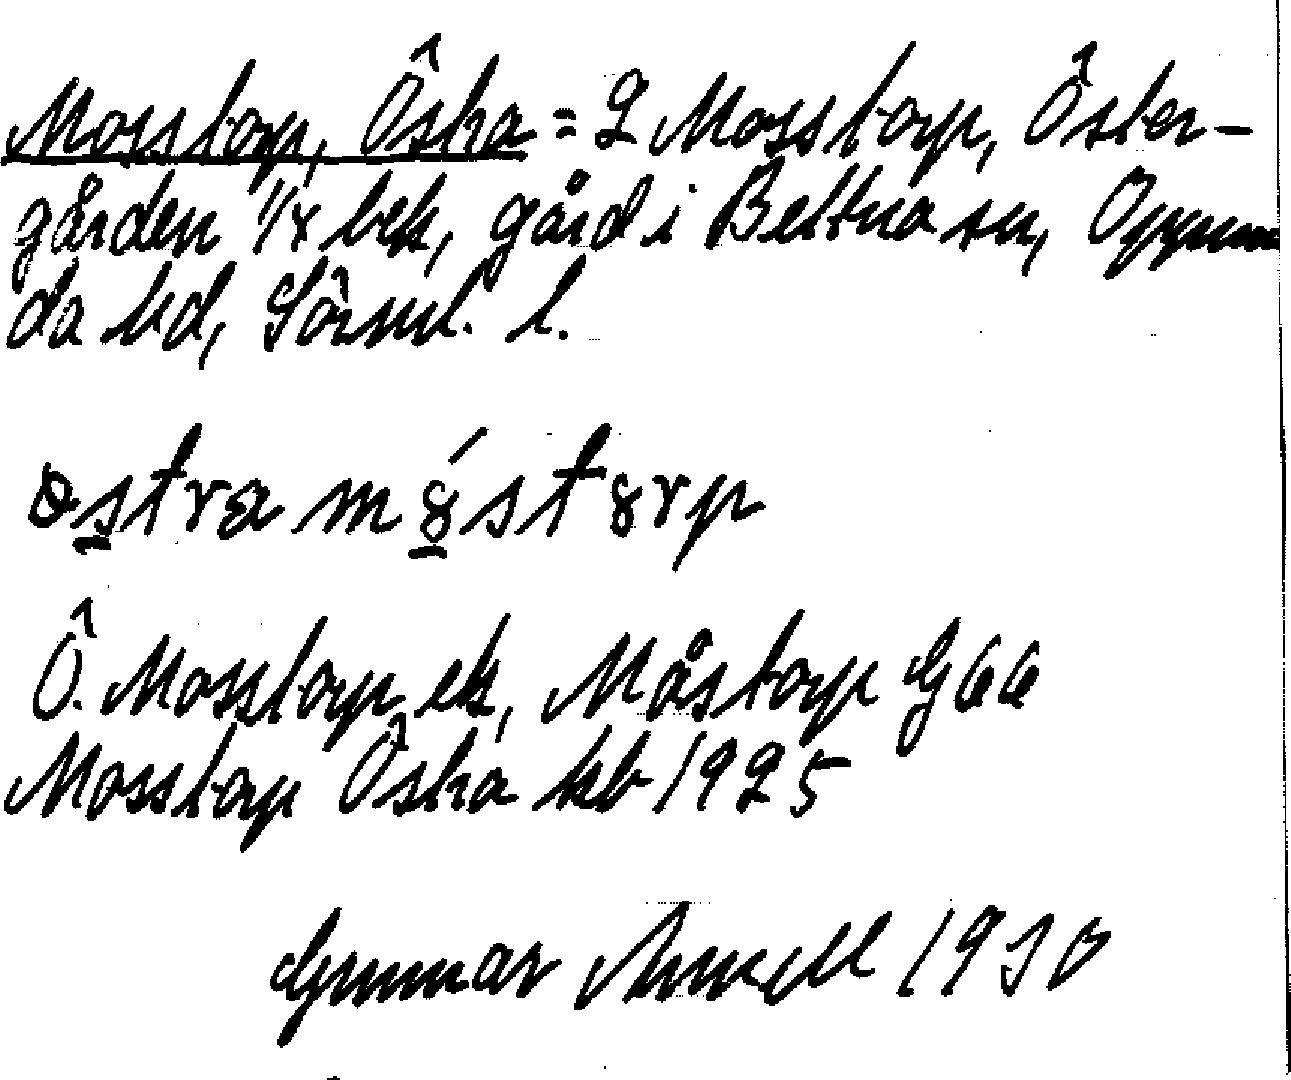 Mosstorp, Östra = 2 Mosstorp, Öster-
gården 1/8 bek, gård i Bettna sn, Oppun
da hd, Sörml. l.
østra mó̱storp
Ö. Mosstorp ek, Måstorp G 66
Mosstorp Östra kb 1925
Gunnar 1930